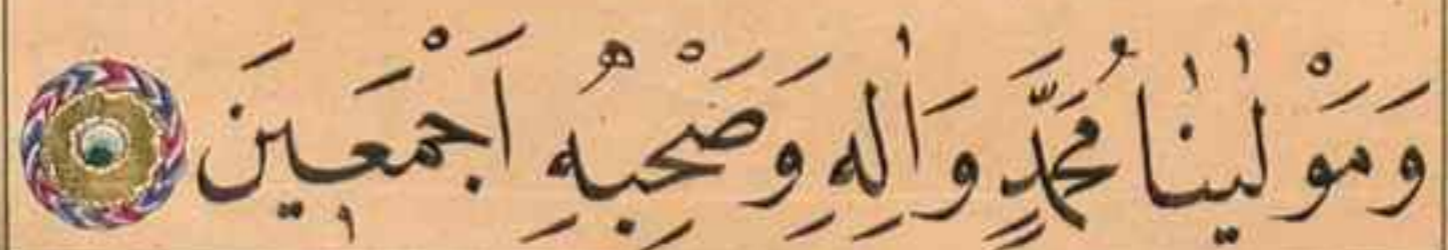 وَمَوْلٰينٰا مُحَمَّدٍ وَاٰلِهِ وَصَحْبِهِ اَجْمَعَينَ